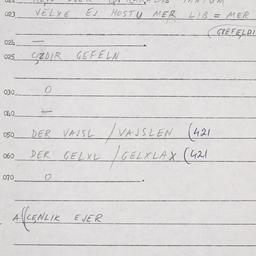 023 VELXE EJ HOSTU MER LIB = MER
(GEFELDI
024 —
025 GEDIR GEFELN
030 0
040 —
050 DER VAJSL / VAJSLEN (421
060 DER GELXL / GELXLAX (421
070 0
A) CENLIK EJER